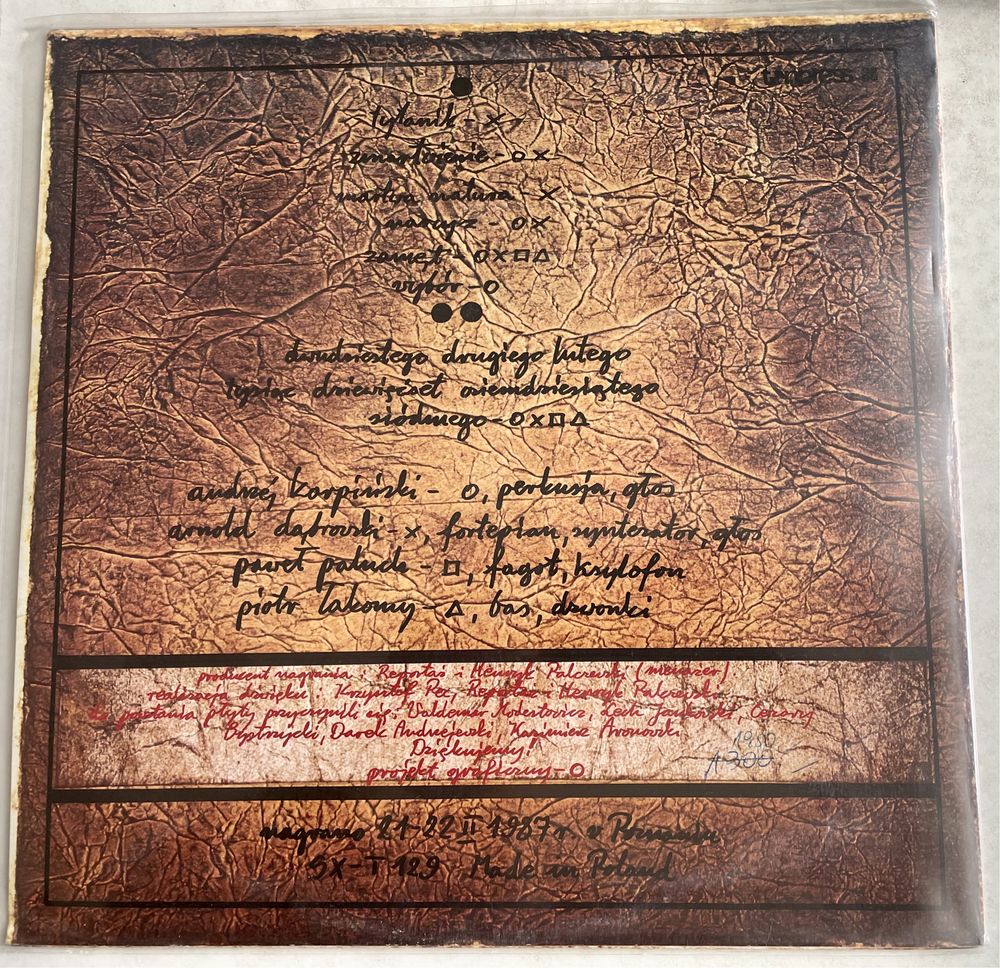 ●
tytanik - x
zmartwienie - o x
martwa natura - x
narcyz - o x
zamęt - o x □ △
wybór - o
●●
dwudziestego drugiego lutego
tysiąc dziewięćset osiemdziesiątego
siódmego - o x □ △
andrzej karpiński - o, perkusja, głos
arnold dąbrowski - x, fortepian, syntezator, głos
paweł paluch - □, fagot, ksylofon
piotr łakomy - △, bas, dzwonki
producent nagrania: Reportaż i Henryk Palczewski (menażer)
realizacja dźwięku: Krzysztof Pec, Reportaż i Henryk Palczewski
do powstania płyty przyczynili się: Waldemar Lech Jankowski, Cezary
Darek Andrzejewski, Kazimierz
Dziękujemy!
projekt graficzny - o
1980
A300
nagrano 21-22 II 1987 r w Poznaniu
SX-T 129 Made in Poland